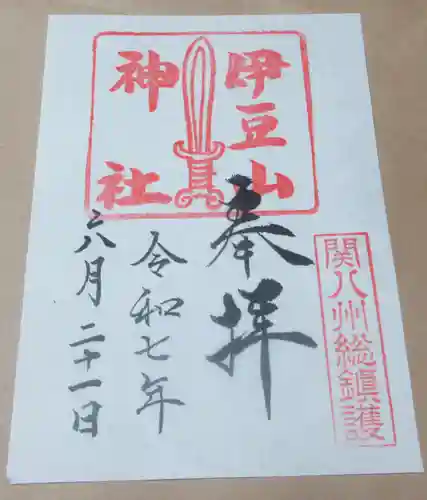 関八州総鎮護
伊豆山
神社
奉拝
令和七年
八月二十一日